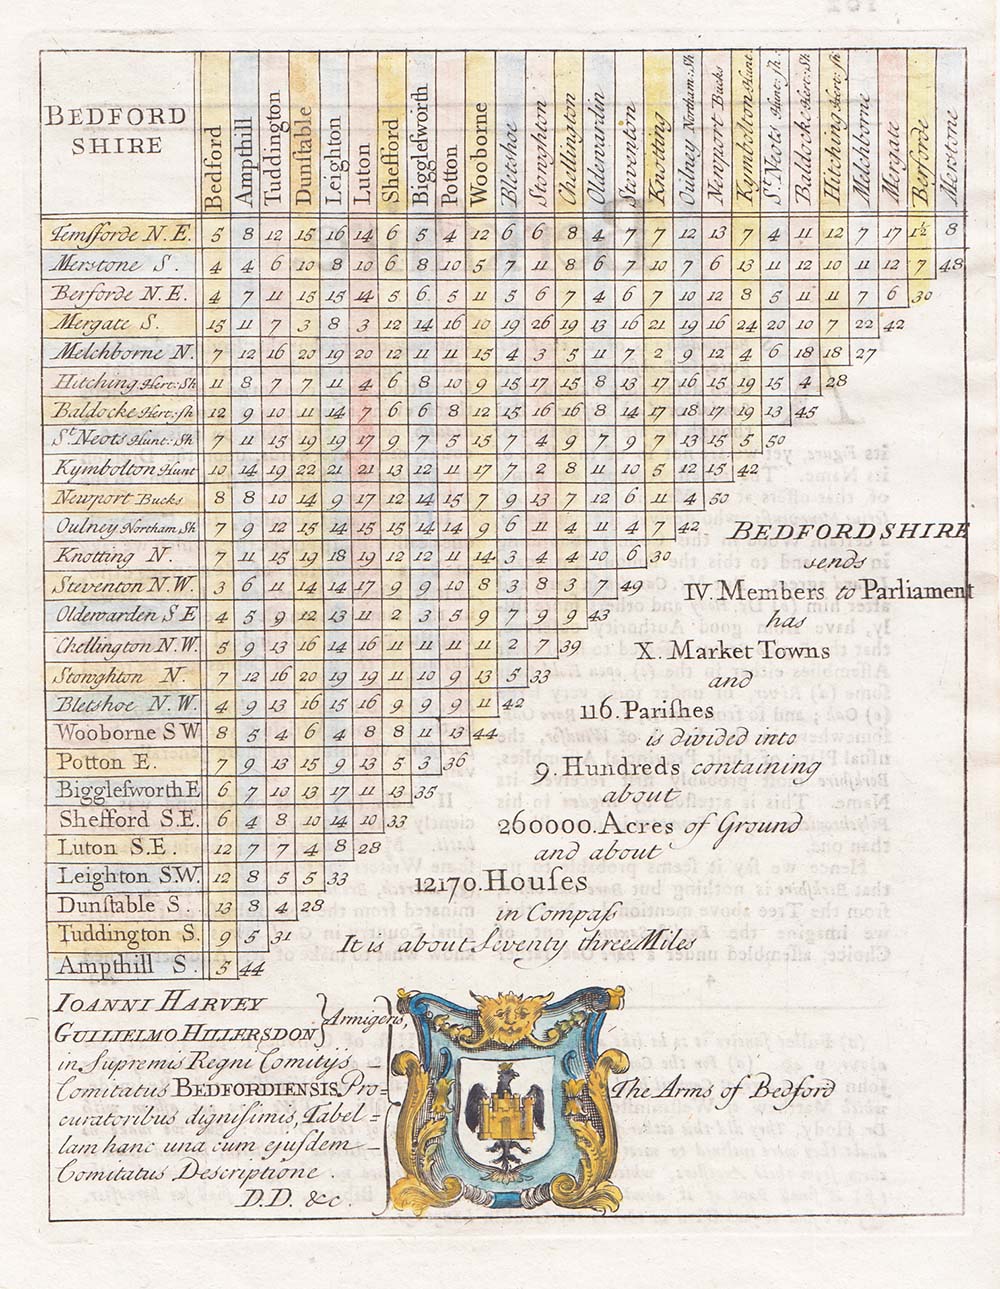 BEDFORD
SHIRE
Bedford Ampthill Tuddington Dunſtable Leighton Luton Shefford Bigglesworth Potton Wooborne Bletshoe Stoughton Chellington Oldewardin Steventon Knotting Oulney Northam: Sh Newport Bucks Kymbolton Hunt St. Neots Hunt: sh: Baldocke Hert: Sh Hitching Hert: sh Melchborne Mergate Berforde Merstone
Temsforde N. E. 5 8 12 15 16 14 6 5 4 12 6 6 8 4 7 7 12 13 7 4 11 12 7 17 1½ 8
Merstone S. 4 4 6 10 8 10 6 8 10 5 7 11 8 6 7 10 7 6 13 11 12 10 11 12 7 48
Berforde N. E. 4 7 11 15 15 14 5 6 5 11 5 6 7 4 6 7 10 12 8 5 11 11 7 6 30
Mergate S. 15 11 7 3 8 3 12 14 16 10 19 26 19 13 16 21 19 16 24 20 10 7 22 42
Melchborne N. 7 12 16 20 19 20 12 11 11 15 4 3 5 11 7 2 9 12 4 6 18 18 27
Hitching Hert: Sh 11 8 7 7 11 4 6 8 10 9 15 17 15 8 13 17 16 15 19 15 4 28
Baldocke Hert: sh 12 9 10 11 14 7 6 6 8 12 15 16 16 8 14 17 18 17 19 13 45
St. Neots Hunt: Sh 7 11 15 19 19 17 9 7 5 15 7 4 9 7 9 7 13 15 5 50
Kymbolton Hunt 10 14 19 22 21 21 13 12 11 17 7 2 8 11 10 5 12 15 42
Newport Bucks 8 8 10 14 9 17 12 14 15 7 9 13 7 12 6 11 4 50
Oulney Northam: Sh 7 9 12 15 14 15 15 14 14 9 6 11 4 11 4 7 42
Knotting N. 7 11 15 19 18 19 12 12 11 14 3 4 4 10 6 30
Steventon N. W. 3 6 11 14 14 17 9 9 10 8 3 8 3 7 49
Oldewarden S E 4 5 9 12 13 11 2 3 5 9 7 9 9 43
Chellington N. W. 5 9 13 16 14 16 11 11 11 11 2 7 39
Stoughton N. 7 12 16 20 19 19 11 10 9 13 5 33
Bletshoe N. W. 4 9 13 16 15 16 9 9 9 11 42
Wooborne S W 8 5 4 6 4 8 8 11 13 44
Potton E. 7 9 13 15 9 13 5 3 36
Bigglesworth E 6 7 10 13 17 11 13 35
Shefford S. E. 6 4 8 10 14 10 33
Luton S.E. 12 7 7 4 8 28
Leighton S.W. 12 8 5 5 33
Dunſtable S. 13 8 4 28
Tuddington S. 9 5 31
Ampthill S. 5 44
BEDFORDSHIRE
sends
IV. Members to Parliament
has
X. Market Towns
and
116. Pariſhes
is divided into
9. Hundreds containing
about
260000. Acres of Ground
and about
12170. Houſes
in Compaſs
It is about ſeventy three Miles
IOANNI HARVEY
GULLIELMO HILLERSDON
Armigeris,
in Supremis Regni Comitys
Comitatus BEDFORDIENSIS Pro-
curatoribus digniſsimis, Tabel-
lam hanc una cum ejuſdem
Comitatus Descriptione.
D.D. &c.
The Arms of Bedford